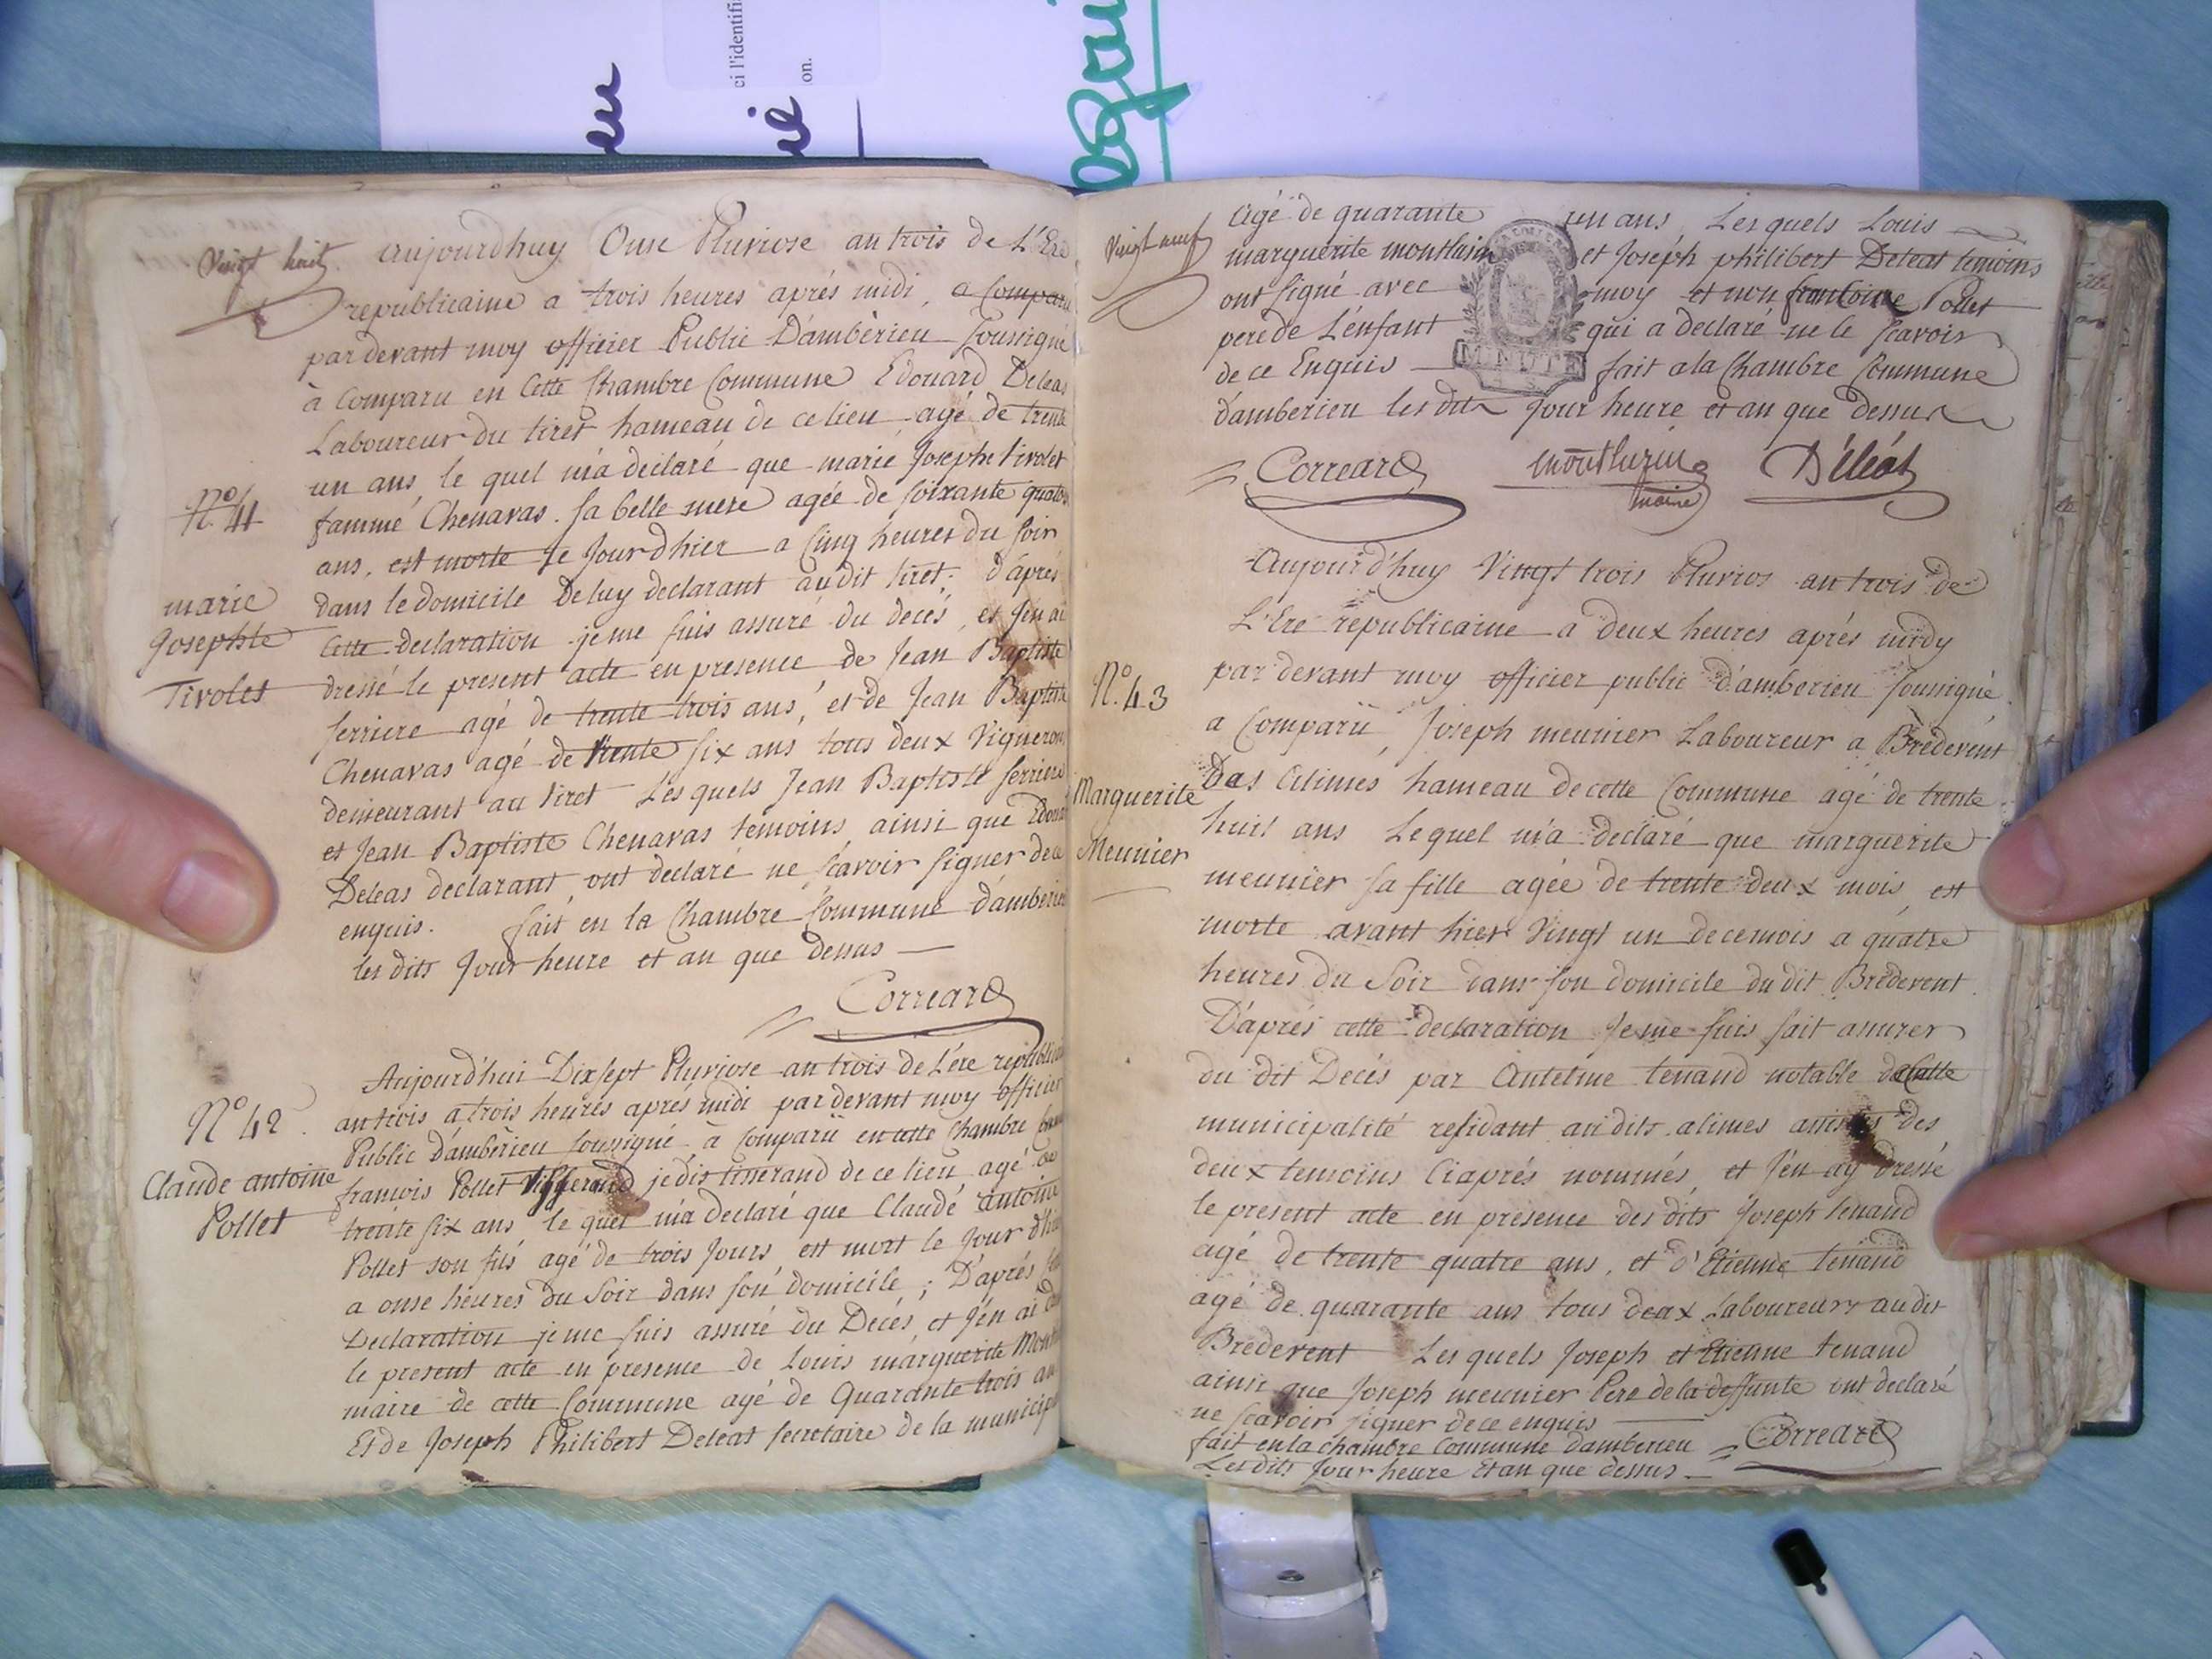 ci l'identifi
on.
Vingt huit
aujourdhuy Onse Pluviose an trois de L'Ere
republicaine a trois heures aprés midi, a Comparu
par devant moy officier Public D'ambérieu Soussigné
à Comparu en Cette Chambre Commune Edouard Deleas
Laboureur du tiret hameau de ce lieu agé de trente
un ans le quel m'a déclaré que marie Josephe tivolet
famme Chenavas sa belle mere agée de soixante quatorse
ans, est morte le Jour dhier a Cinq heures du soir
dans le domicile De luy declarant audit tiret; d'aprés
Cette declaration je me suis assuré du decés, et J'en ai
dressé le present acte en presence de Jean Baptiste
ferriere agé de trente trois ans, et de Jean Baptiste
Chenavas agé de trente six ans tous deux Vignerons
demeurant au tiret Lesquels Jean Baptiste ferriere
et Jean Baptiste Chenavas temoins ainsi que Edouard
Deleas declarant, ont declaré ne sçavoir signer de ce
enquis. fait en la Chambre Commune d'amberieu
les dits Jour heure et an que dessus
Correard
N.º 41
marie
Josephte
Tivolet
Aujourd'hui Dix sept Pluviose an trois de L'ére republicaine
an trois a trois heures aprés midi par devant moy officier
Public D'ambérieu soussigné à Comparü en cette Chambre
françois Pollet je dis tisserand de ce lieu agé de
trente six ans le quel m'a declaré que Claude antoine
Pollet son fils agé de trois Jours, est mort le Jour d'hier
a onse heures du Soir dans son domicile; D'aprés
Declaration je me suis assuré du Decés, et J'en ai
le present acte en presence de Louis marguerite
maire de cette Commune agé de Quarante trois ans
Et de Joseph Philibert Deleat secretaire de la
N.º 42.
Claude antoine
Pollet
Vingt neuf
agé de quarante un ans Les quels Louis
marguerite monthurin et Joseph philibert Deleat temoins
ont signé avec moy et non Pollet
pere de L'enfant qui a declaré ne le sçavoir
de ce Enquis fait a la Chambre Commune
d'amberieu les dits Jour heure et an que dessus
MINUTE
Correard Monthurin Déléat
maire
Aujourd'huy Vingt trois Pluvios an trois de
L'Ere republicaine a deux heures aprés midy
par devant moy officier public d'amberieu soussigné
a Comparü, Joseph meunier Laboureur a Brédevent
Das hameau de cette Commune agé de trente
huit ans Lequel m'a declaré que marguerite
meunier sa fille agée de trente deux mois est
morte avant hier Vingt un de ce mois a quatre
heures du Soir dans son domicile du dit Brédevent.
D'aprés cette declaration Je me suis fait assurer
du dit Decés par Antelme tenand notable de Cette
municipalité residant audits alimes des
deux temoins Ciaprés nommés, et J'en ay dressé
le present acte en présence des dits Joseph tenand
agé de trente quatre ans, et d'Etienne tenand
agé de quarante ans tous deux Laboureurs audit
Bredevent Les quels Joseph et Etienne tenand
ainsi que Joseph meunier Pere de la deffunte ont declaré
ne sçavoir signer de ce enquis
fait en la chambre Commune damberieu
Les dits Jour heure Et an que dessus
Correard
N.º 43
Marguerite
Meunier